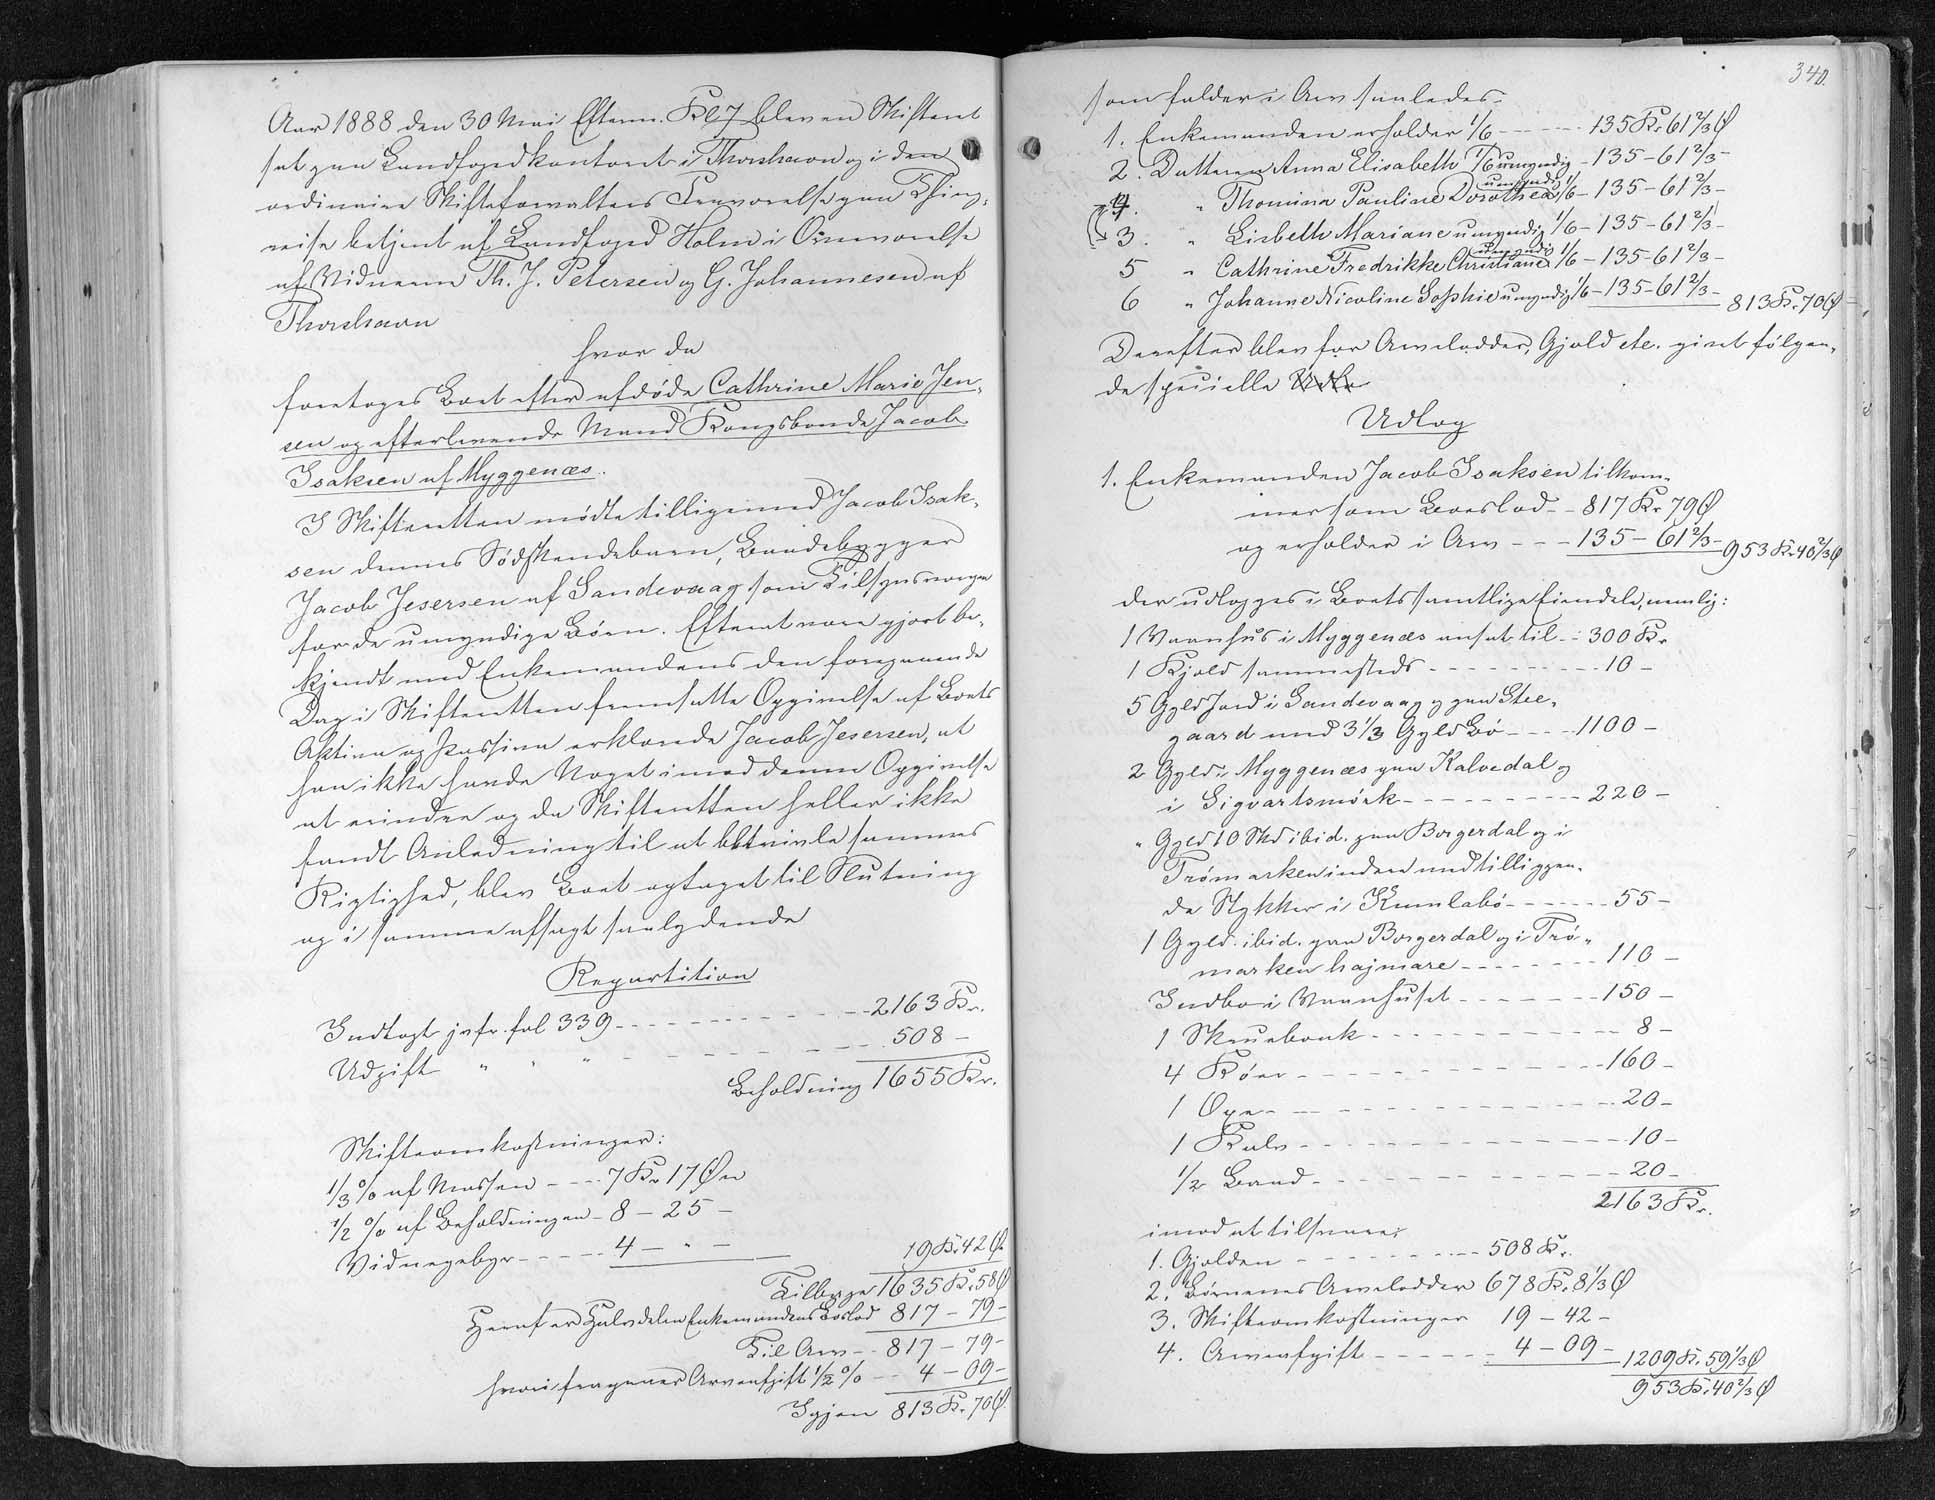 Aar 1888 den 30 Mai Efterm. Kl 7 blev en Skifteret
sat paa Landfogedkontoret i Thorshavn og i den
ordinaire Skifteforvalters Fraværelse paa Thing-
reise betjent af Landfoged Holm i Overværelse
af Vidnerne Th. J. Petersen og G. Johannesen af
Thorshavn
hvor da
foretoges Boet efter afdøde Cathrine Marie Jen-
sen og efterlevende Mand Kongsbonde Jacob
Isaksen af Myggenæs.
I Skifteretten mødte tilligemed Jacob Isak-
sen dennes Sødskendebarn, Bundebygger
Jacob Jesersen af Sandevaag som Tilsynsværge
for de umyndige Børn. Efter at være gjort be-
kjendt med Enkemandens den foregaaende
Dag i Skifteretten fremsatte Opgivelse af Boets
Aktiva og Passiva erklærede Jacob Jesersen, at
han ikke havde Noget imod denne Opgivelse
at erindre og da Skifteretten heller ikke
fandt Anledning til at betvivle sammes
Rigtighed, blev Boet optaget til Slutning
og i samme afsagt saalydende
Repartition
Indtægt jvfr. fol 339 - - - 2163 Kr.
Udgift " " " - - - 508 -
Beholdning 1655 Kr.
Skifteomkostninger:
1/3 % af Massen - - - 7 Kr 17 Øre
1/2 % af Beholdningen - 8 - 25 -
Vidnegebyr - - - - - 4 - " - 19 Kr. 42 Ø.
Tilbage 1635 Kr. 58 Ø
Heraf er Halvdelen Enkemandens Boslod 817 - 79 -
Til Arv - - 817 - 79 -
hvori fragaaer Arveafgift 1/2 % - - 4 - 09 -
Igjen 813 Kr. 70 Ø.
340.
som falder i Arv saaledes:
1. Enkemanden erholder 1/6 - - - - 135 Kr 61 2/3 Ø
2. Datteren Anna Elisabeth 1/6 umyndig - 135 - 61 2/3 -
4. " Thomina Pauline Dorothea umyndig 1/6 - 135 - 61 2/3 -
3. " Lisbeth Mariane umyndig 1/6 - 135 - 61 2/3 -
5 " Cathrine Fredrikke Christiane umyndig 1/6 - 135 - 61 2/3 -
6 " Johanne Nicoline Sophie umyndig 1/6 - 135 - 61 2/3 - 813 Kr. 70 Ø
Derefter blev for Arvelodder, Gjæld etc. giort følgen-
de specielle Udlæ
Udlæg
1. Enkemanden Jacob Isaksen tilkom-
mer som Boeslod - - 817 Kr 79 Ø
og erholder i Arv - - - 135 - 61 2/3 - 953 Kr. 40 2/3 Ø
der udlægges i Boets samtlige Eiendele, nemlig:
1 Vaanhus i Myggenæs ansat til - - 300 Kr
1 Kjæld sammesteds - - - - - - 10 -
5 Gyld Jord i Sandevaag og paa Stee-
gaard med 3 1/3 Gyld Bø - - - - 1100 -
2 Gyld i Myggenæs paa Kalvedal og
i Sigvartsmørk - - - - - - 220 -
" Gyld 10 Skd ibid. paa Borgerdal og i
Trømarken indre med tilliggen-
de Stykker i Kumlabø - - - - - 55 -
1 Gyld ibid. paa Borgerdal og i Trø-
marken hajmare - - - - - - 110 -
Indbo i Vaanhuset - - - - - 150 -
1 Skruebænk - - - - - - 8 -
4 Køer - - - - - - 160 -
1 Oxe - - - - - - 20 -
1 Kalv - - - - - - 10 -
1/2 Baad - - - - - - 20 -
2163 Kr.
imod at tilsvare:
1. Gjælden - - - - - - 508 Kr.
2. Børnenes Arvelodder 678 Kr. 8 1/3 Ø
3. Skifteomkostninger 19 - 42 -
4. Arveafgift - - - - - - 4 - 09 - 1209 Kr. 59 1/3 Ø
953 Kr. 40 2/3 Ø